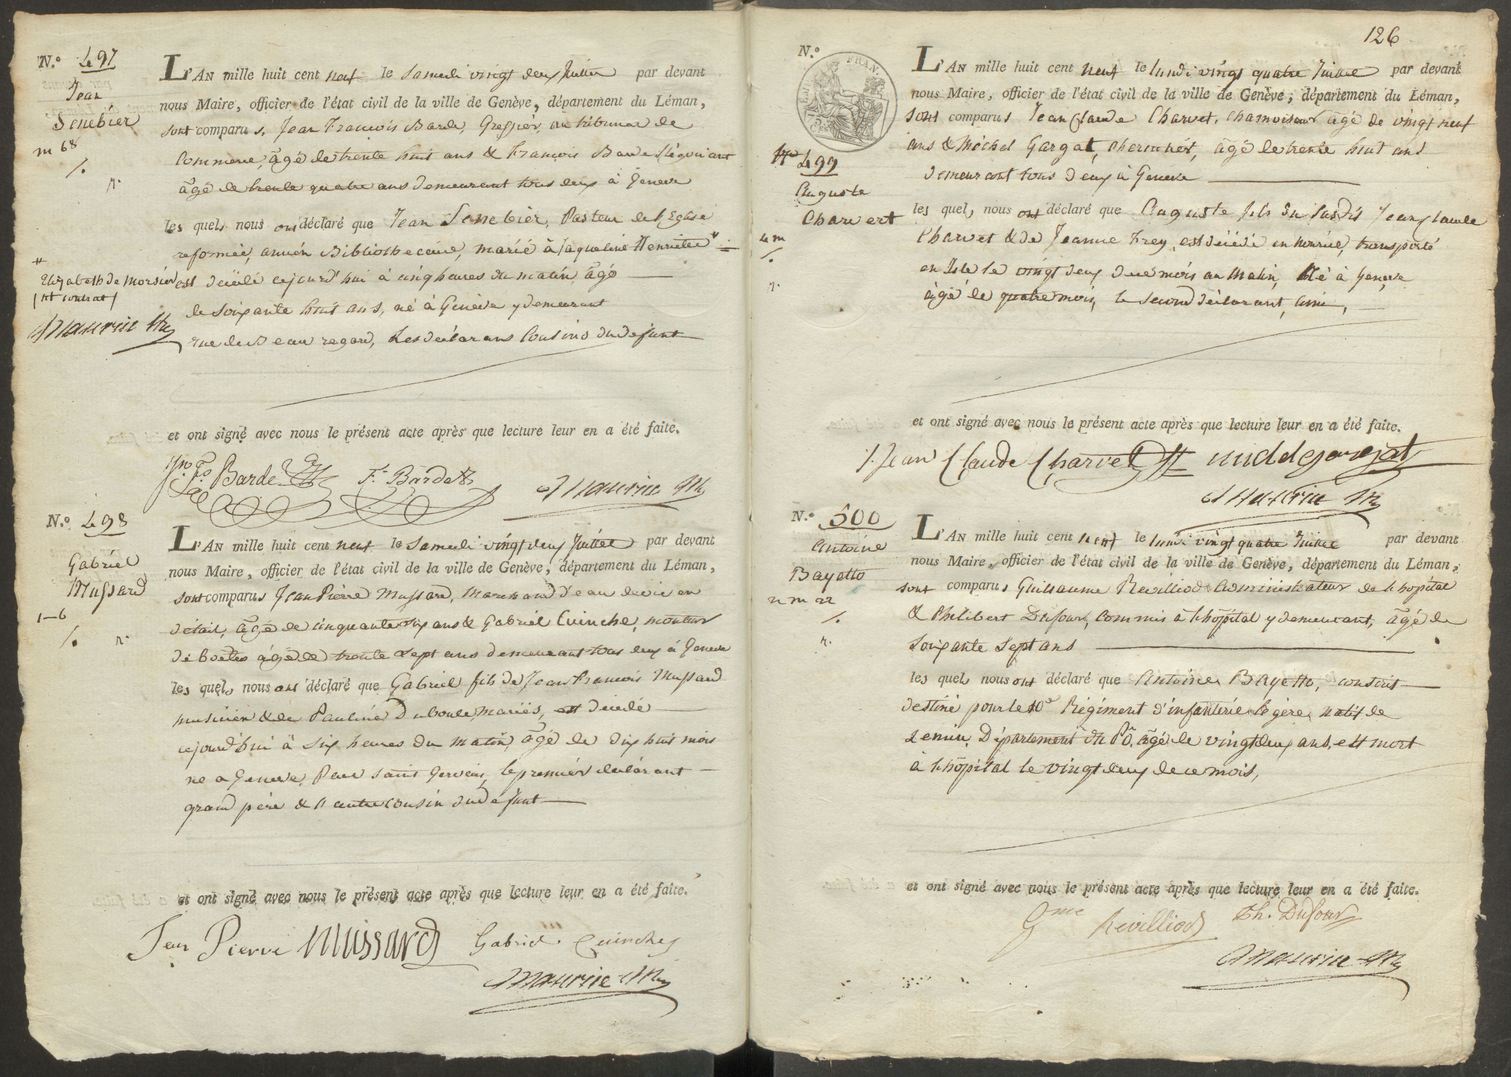 N.º 497
Jean
Senebier
m 68
L'AN mille huit cent neuf le Samedi vingt deux Juillet par devant
nous Maire, officier de l'état civil de la ville de Genève, département du Léman,
sont comparus, Jean François Barde, Greffier au tribunal de
Commerce, âgé de trente huit ans & François Barde Négociant
âgé de trente quatre ans demeurant tous deux à Geneve
les quels nous ont déclaré que Jean Senebier, Pasteur de l'Eglise
reformée, ancien Bibliothecaire, marié à Jaqueline Henriette #
# Elizabeth de Morsier
Maurice
est décédé cejourd'hui à cinq heures du matin, âgé
de soixante huit ans, né à Genève y demeurant
rue de Beauregard, Les déclarans Cousins du defunt
et ont signé avec nous le présent acte après que lecture leur en a été faite.
Barde Fs. Barde Maurice
N.º 498
Gabriel
Mussard
1-6
L'AN mille huit cent neuf le Samedi vingt deux Juillet par devant
nous Maire, officier de l'état civil de la ville de Genève, département du Léman,
sont comparus Jean Pierre Mussard, Marchand d'eau de vie en
détail, âgé de cinquante six ans & Gabriel Cuinche, monteur
de boetes âgé de trente sept ans demeurant tous deux à Geneve
les quels nous ont déclaré que Gabriel fils de Jean François Mussard
musicien & de Pauline Duboule, mariés, est décédé
cejourd'hui à six heures du matin, âgé de dix huit mois
né à Geneve, Parc Saint Gervais, le premier déclarant
grand père & l'autre cousin du defunt
et ont signé avec nous le présent acte après que lecture leur en a été faite.
Jean Pierre Mussard Gabriel Cuinche
Maurice
126
N.º
No 499
Auguste
Charvet
4 m
L'AN mille huit cent neuf le lundi vingt quatre Juillet par devant
nous Maire, officier de l'état civil de la ville de Genève, département du Léman,
sont comparus Jean Claude Charvet, Chamoiseur âgé de vingt neuf
ans & Michel Gargat, âgé de trente huit ans
demeurant tous deux à Geneve
les quels nous ont déclaré que Auguste fils du susdit Jean Claude
Charvet & de Jeanne Frey, est décédé en transporté
en le vingt deux de ce mois au Matin, Né à Geneve
âgé de quatre mois, le second déclarant, ami,
et ont signé avec nous le présent acte après que lecture leur en a été faite.
Jean Claude Charvet
Maurice
N.º 500
Antoine
Bayetto
22
L'AN mille huit cent neuf le lundi vingt quatre Juillet par devant
nous Maire, officier de l'état civil de la ville de Genève, département du Léman,
sont comparus Guillaume Revilliod Administrateur de l'hôpital
& Philibert Dufour, commis à l'hôpital y demeurant, âgé de
soixante sept ans
les quels nous ont déclaré que Antoine Bayetto, conscrit
destiné pour le 10e Régiment d'infanterie légere, natif de
Département du Pô, âgé de vingt deux ans, est mort
à l'hôpital le vingt deux de ce mois,
et ont signé avec nous le présent acte après que lecture leur en a été faite.
Gme Revilliod Ph. Dufour
Maurice